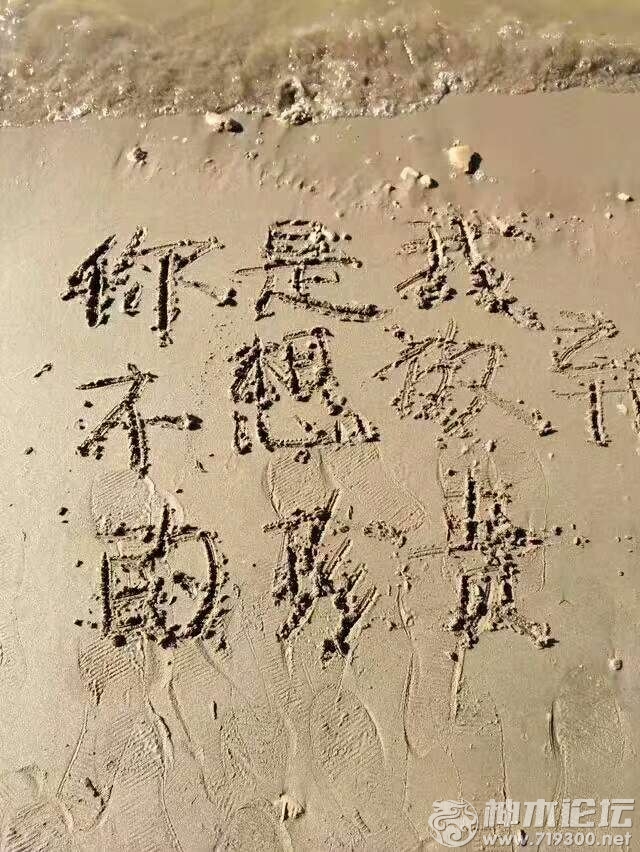 你是我
不想放弃
的珍贵
神木论坛
www.719300.net